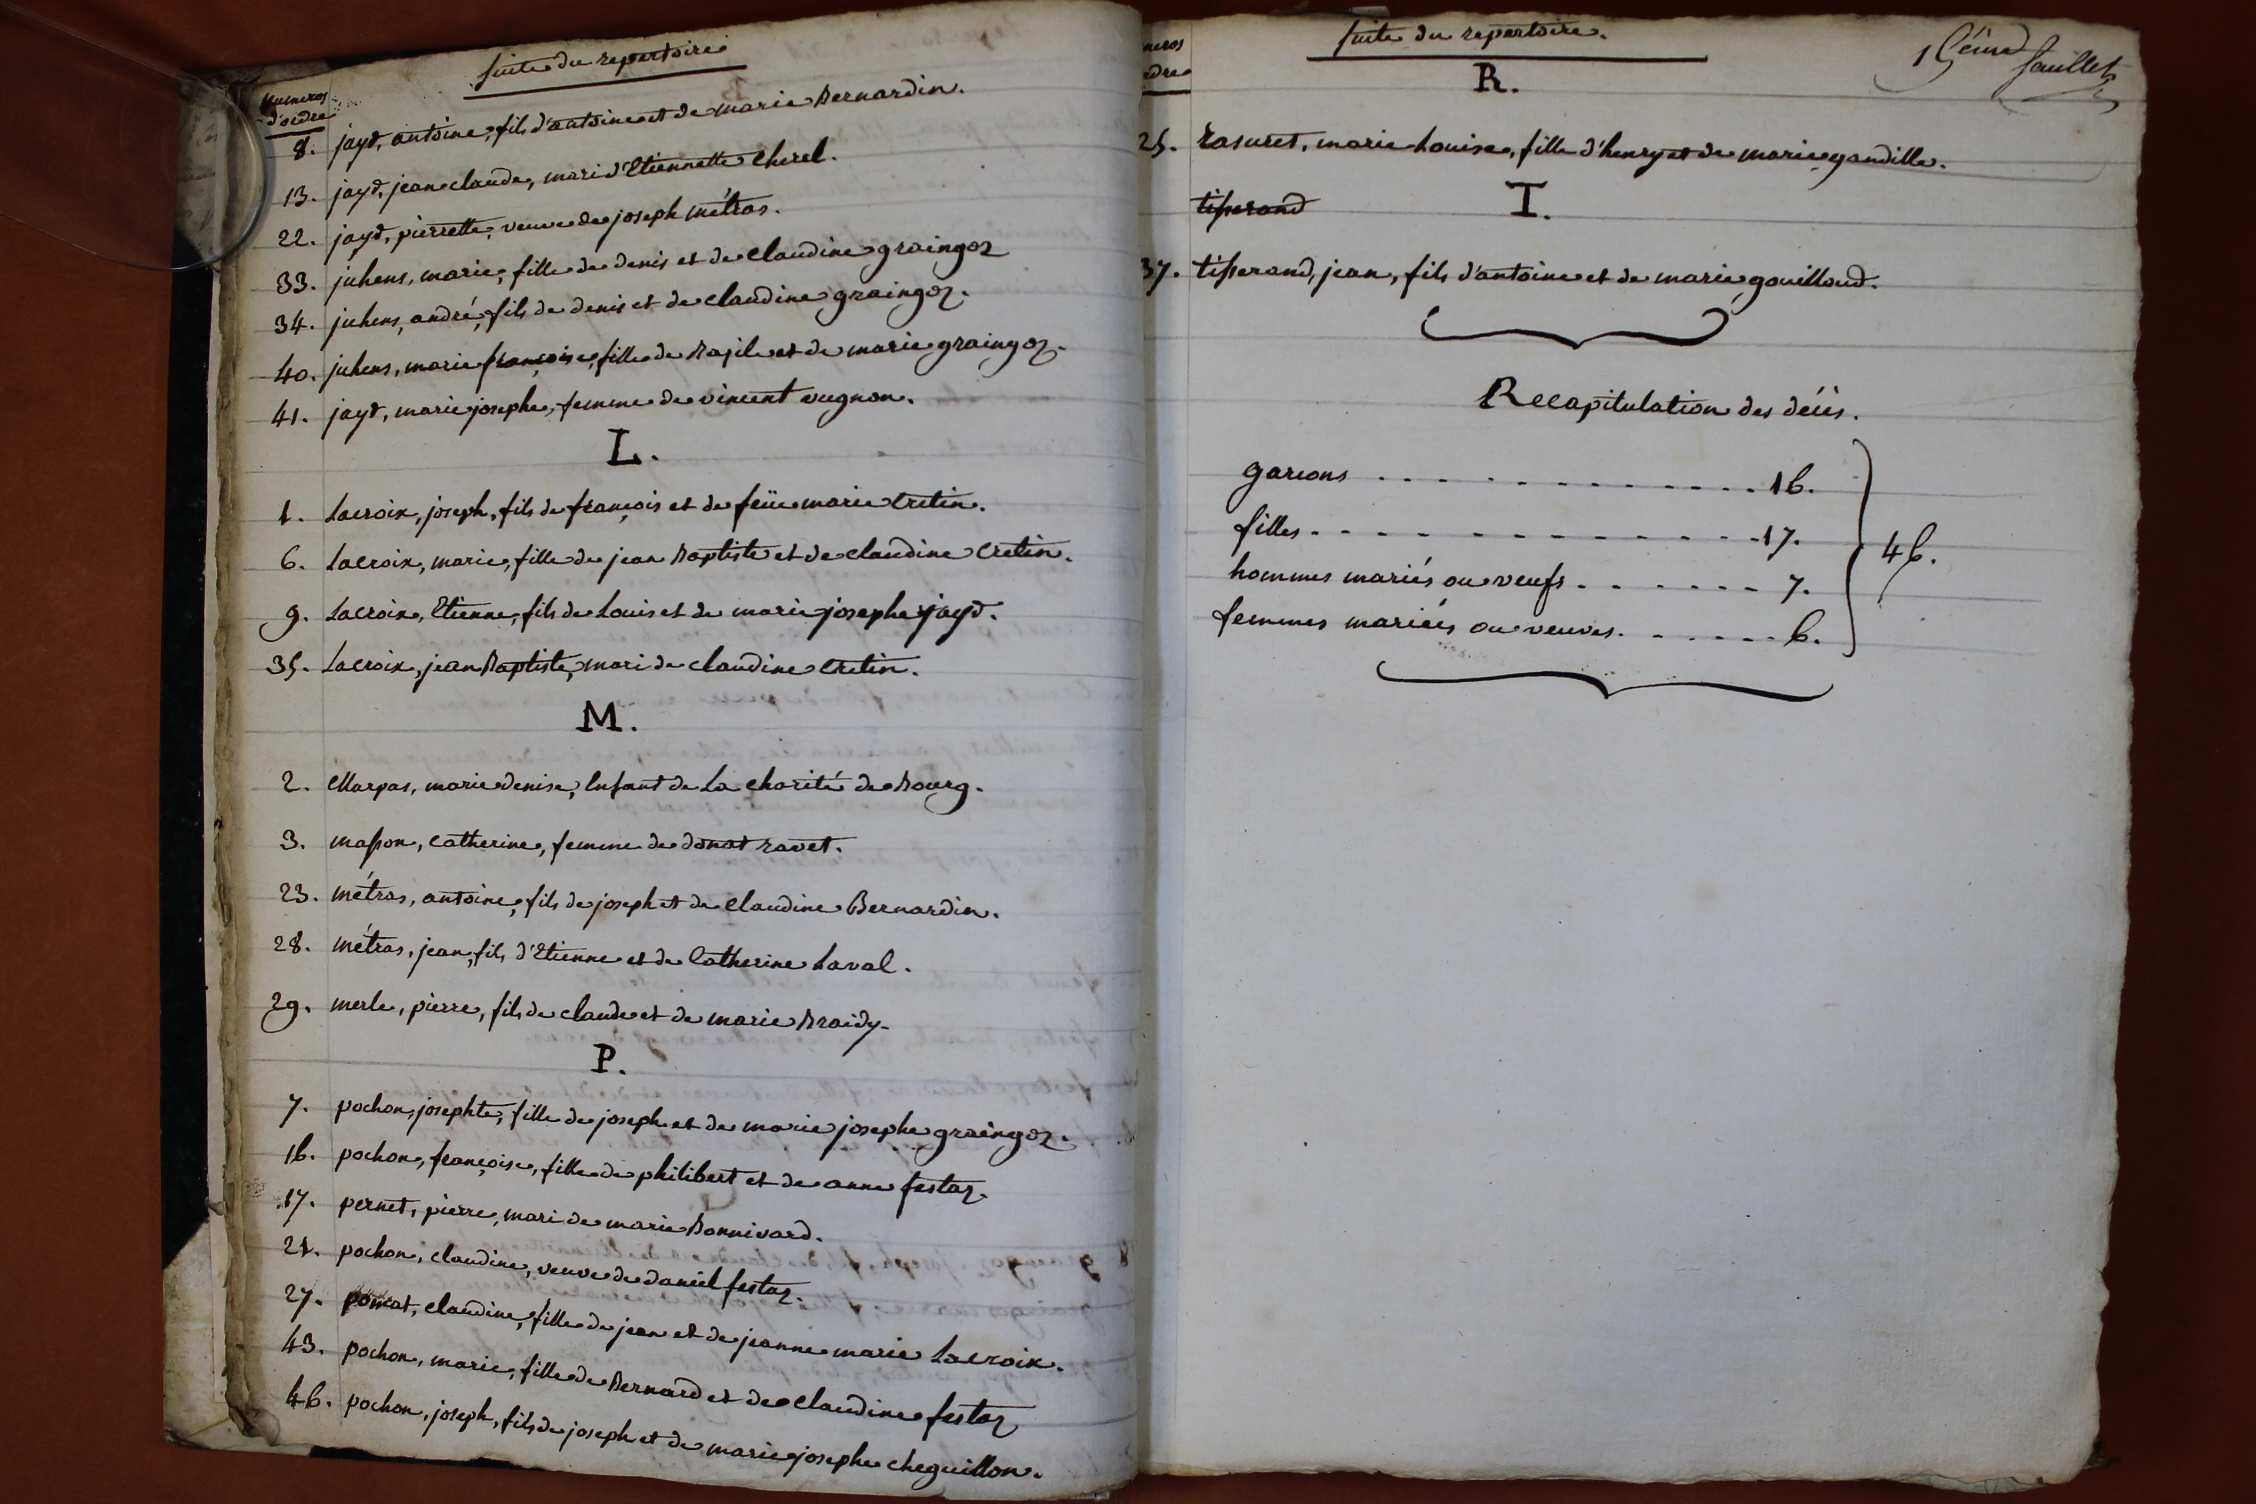 suite du repertoire
Numeros
d'ordre
8. jayd, antoine, fils d'antoine et de marie Bernardin.
13. jayd, jean claude, mari d'Etiennette Cherel.
22. jayd, pierrette, veuve de joseph métras.
33. juhens, marie, fille de denis et de Claudine graingoz
34. juhens, andré, fils de denis et de Claudine graingoz.
40. juhens, marie françoise, fille de Bazile et de marie graingoz.
41. jayd, marie josephe, femme de vincent vugnon.
L.
1. Lacroix, joseph, fils de françois et de feüe marie Cretin.
6. Lacroix, marie, fille de jean Baptiste et de Claudine Cretin.
9. Lacroix, Etienne, fils de Louis et de marie josephe jayd.
35. Lacroix, jean Baptiste, mari de Claudine Cretin.
M.
2. Marpas, marie denise, Enfant de La Charité de Bourg.
3. masson, Catherine, femme de donat ravet.
23. métras, antoine, fils de joseph et de Claudine Bernardin.
28. métras, jean, fils d'Etienne et de Catherine Laval.
29. merle, pierre, fils de claude et de marie Braidy.
P.
7. pochon, josephte, fille de joseph et de marie josephe graingoz.
16. pochon, françoise, fille de philibert et de anne festaz.
17. pernet, pierre, mari de marie Bonnivard.
21. pochon, claudine, veuve de daniel festaz.
27. poncat, claudine, fille de jean et de jeanne marie Lacroix.
43. pochon, marie, fille de Bernard et de Claudine festaz
46. pochon, joseph, fils de joseph et de marie josephe cheguillon.
suite du repertoire.
15éme feuillet
meros
rdre
R.
25. rasuret, marie Louise, fille d'henry et de marie gandille.
tisserand
T.
37. tisserand, jean, fils d'antoine et de marie gouilloud.
Recapitulation des décès.
garcons 16.
filles 17.
46.
hommes mariés ou veufs 7.
femmes mariées ou veuves. 6.